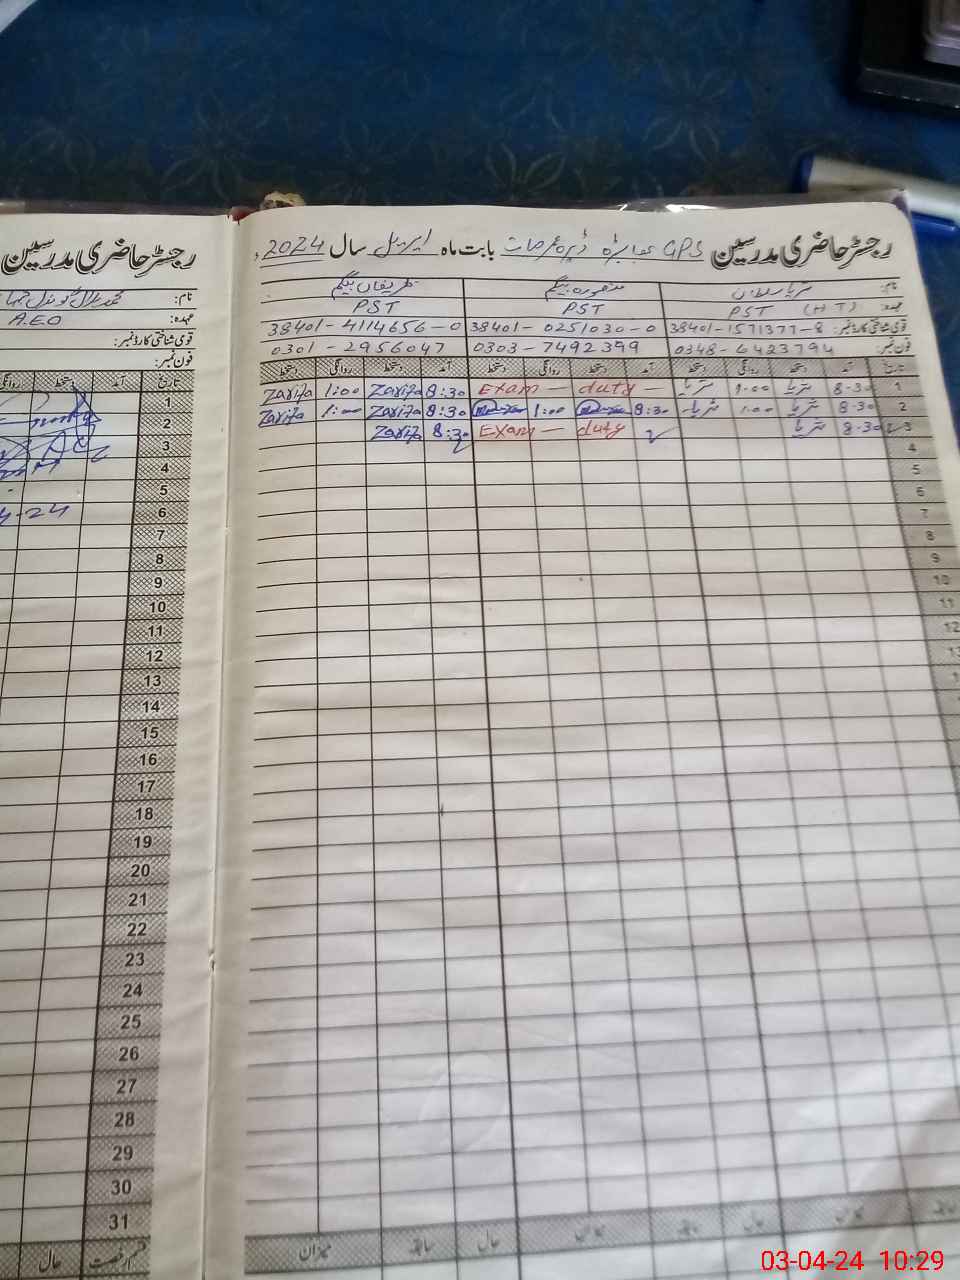 رجسٹر حاضری مدرسین GPS ڈیرہ بابت ماہ اپریل سال 2024ء
نام: ثریا سلطان منصورہ بیگم ظریفاں بیگم
عہدہ: PST (H T) PST PST
قومی شناختی کارڈ نمبر: 38401-1571377-8 38401-0251030-0 38401-4114656-0
فون نمبر: 0348-6423794 0303-7492399 0301-2956047
تاریخ آمد دستخط روانگی دستخط آمد دستخط روانگی دستخط آمد دستخط روانگی دستخط
1 8-30 ثریا 1:00 ثریا Exam - duty - 8:30 Zarifa 1:00 Zarifa
2 8-30 ثریا 1:00 ثریا 8:30 1:00 8:30 Zarifa 1:00 Zarifa
3 8-30 ثریا Exam - duty 8:30 Zarifa
4
5
6
7
8
9
10
11
12
13
میزان سابقہ حال میزان سابقہ حال میزان سابقہ
رجسٹر حاضری مدرسین
نام: محمد بلال گوندل
عہدہ: A.E.O
قومی شناختی کارڈ نمبر:
فون نمبر:
تاریخ آمد دستخط روانگی
1
2
3
4
5
6 4-24
7
8
9
10
11
12
13
14
15
16
17
18
19
20
21
22
23
24
25
26
27
28
29
30
31
قسم رخصت حال
03-04-24 10:29